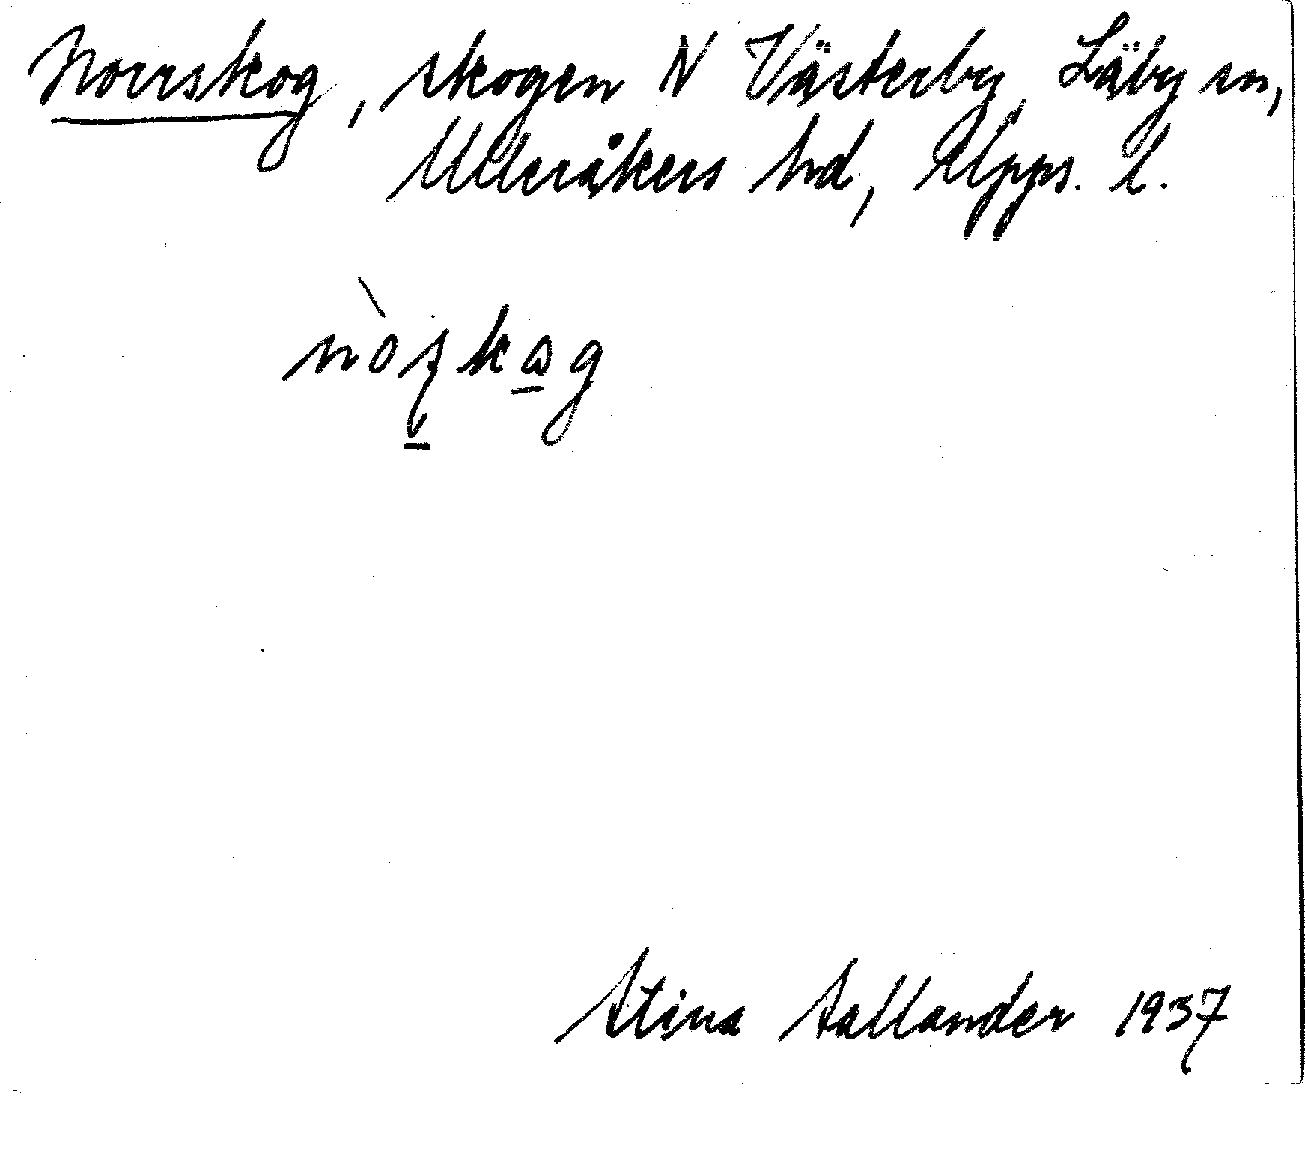 Norrskog, skogen N Västerby, Läby sn,
Ulleråkers hd, Upps. l.
Stina Sallander 1937